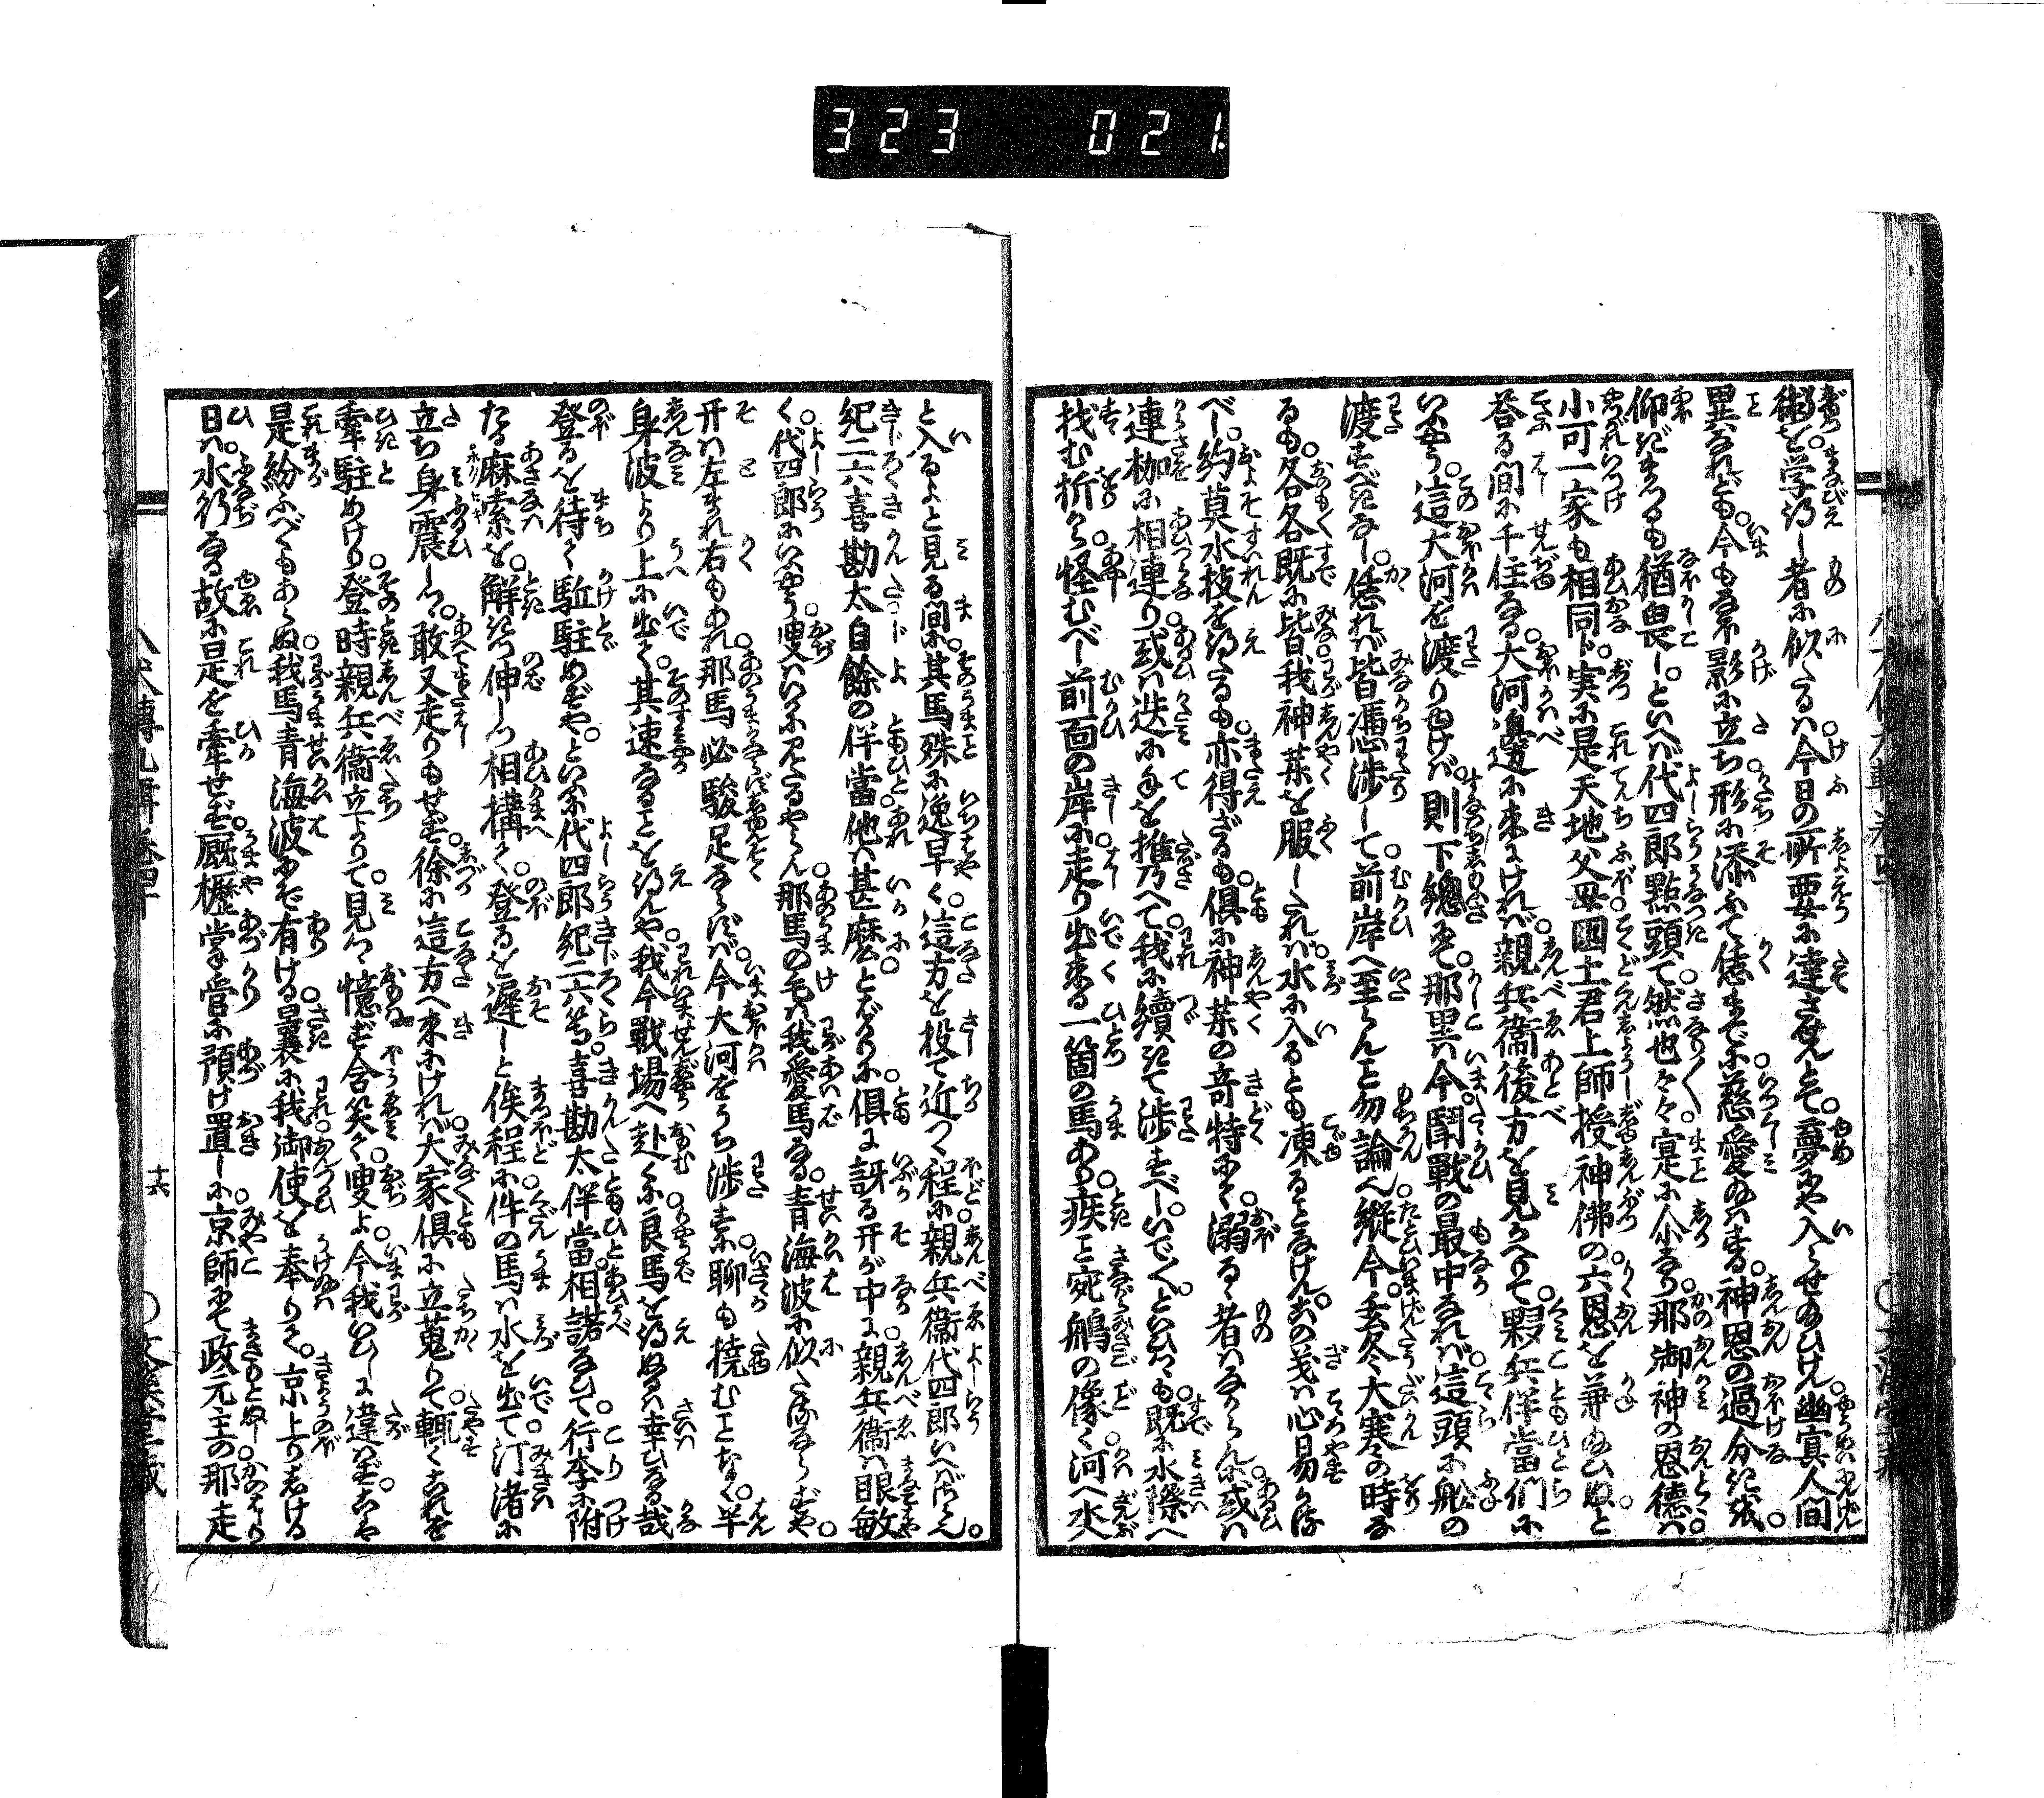 323 021
術を。学得し者に似たるは今日の所要に達させんとて。夢にや入らせ給ひけん。幽冥人間
異なれども。今もなほ影に立ち形に添ふて。恁までに慈愛給はする。神恩の過分さ哉。
仰ぎまつるも猶畏し。といへば代四郎點頭て。然也々々寔に介なり。那御神の恩德は
小可一家も相同じ。実に是天地父母国土君上師授神佛の六恩を兼給ひぬと
荅る間に千住なる。大河邊に来にければ。親兵衛後方を見かへりて。夥兵伴當們に
いふやう。這大河を渡りゆけば。則下總にて。那里は今。鬪戰の最中なれば。這頭に舩の
渡すべきなし。恁れば皆徒渉して。前岸へ至らんこと勿論へ。縦今。玄冬大寒の時なり
るも。各各既に皆我神藥を服したれば。水に入るとも凍ることなけん。这の義は心易かり
べし。約莫水技を得たるも。亦得ざるも。倶に神藥の奇特にて。溺るゝ者はなからんに。或は
連枷に相連り。或は迭に手を推へて。我に續きて渉すべし。いでいでといひつゝも。既に水際へ
找む折から。怪むべし前面の岸に。走り出来る一箇の馬あり。疾こと宛鵰の像く。河へ夾
と入るよと見る間に。其馬殊に逸早く。這方を投て近つく程に。親兵衛代四郎いへばさらん。
紀二六喜勘太自餘の伴當他は甚麽とばかりに。倶に訝る开が中に。親兵衛は眼敏
く。代四郎にいふやう。叟はいかに見たるやらん。那馬の毛は我愛馬なる。青海波に似たらずや。
开は左まれ右もあれ。那馬必駿足ならずば。今大河をうち渉すに。聊も撓むことなく。半
身波より上に出て。其速なることを得んや。我今戰場へ赴くに。良馬を得ぬるは幸ひなる哉
登るを待て駐めずや。といふに代四郎紀二六等。喜勘太伴當相諾なひて。行李に附
たる麻索を。解きつ伸しつ相構て。登るを遲しと俟程に。件の馬は水を出て。汀渚に
立ち身震しつ。敢又走りもせず。徐に這方へ来にければ。大家倶に立蒐りて。輙くこれを
牽駐めけり。登時親兵衛立よりて。見つゝ憶ず含笑て。叟よ。今我いひしに違はず。こや
是紛ふべくもあらぬ。我馬青海波にぞ有ける。曩に我御使を奉りて。京上りしける
日は。水行なる故に是を牽せず。厩櫪掌管に預け置しに。京師にて政元主の那走
八犬傳九輯卷四十
十六
○文溪堂藏